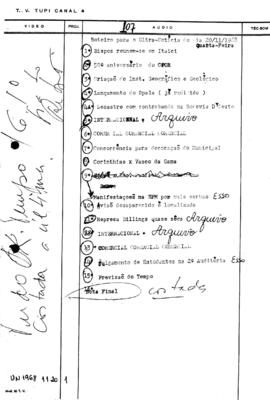 T. V. TUPI CANAL 4
VIDEO
PROJ.
AUDIO
TEC-SOM
107
Roteiro para o Ultra-Notícia do dia 20/11/1968
Quarta-Feira
1- Bispos reunem-se em Itaici
50º aniversário do CPOR
3- Criação do Inst. Geográfico e Geológico
Lançamento do Opala (já redigido)
4A- Desastre com contrabando na Rodovia D'Oeste
5- INTERNACIONAL. Arquivo
6- COMERCIAL COMERCIAL COMERCIAL
7- Concorrência para decoração do Municipal
Corinthias x Vasco da Gama
9-
Manifestações na EPM por mais verbas ESSO
10- Avião desaparecido é localizado
11- Represa Billings quase seca Arquivo
12- INTERNACIONAL. Arquivo
13- COMERCIAL COMERCIAL COMERCIAL
14- Julgamento de Estudantes na 2ª Auditoria ESSO
15- Previsão do Tempo
Nota Final
cortada
Tempo
cortada a última.
VN 1968 11 20 1